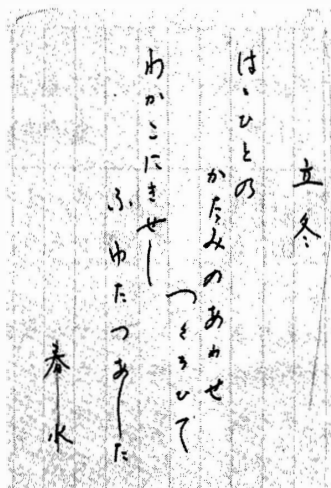 立冬
はゝひとの
かたみのあわせ
つくろひて
わかこにきせし
ふゆたつあした
春水